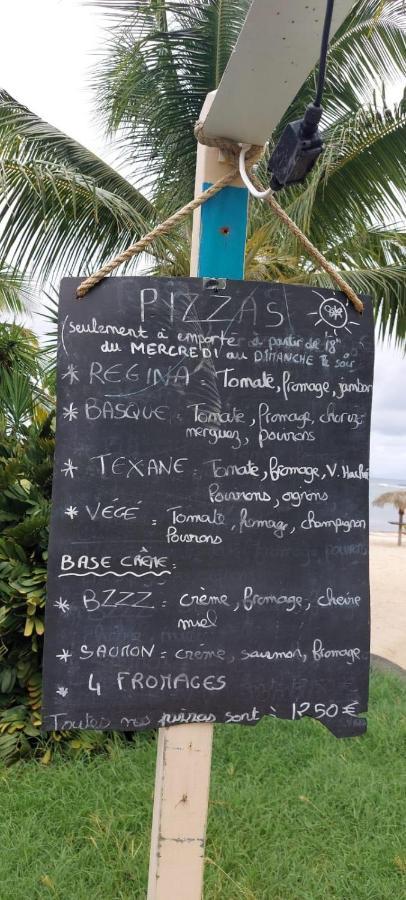 PIZZAS
(seulement à emporter à partir de 18h
du MERCREDI au DIMANCHE soir
* REGINA : Tomate, fromage, jambon
* BASQUE : Tomate, fromage, chorizo
merguez, poivrons
* TEXANE : Tomate, fromage, V. Hachée
Poivrons, oignons
* VÉGÉ : Tomate, fromage, champignon
Poivrons
BASE CRÈME :
* BZZZ : crème, fromage, chèvre
miel
* SAUMON : crème, saumon, fromage
* 4 FROMAGES
Toutes nos pizzas sont à 12,50 €